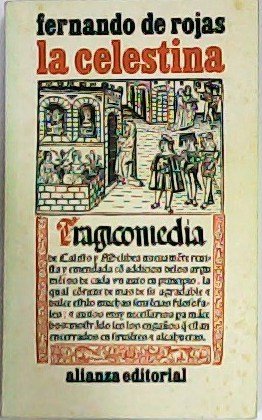 fernando de rojas
la celestina
Tragicomedia
de Calisto y Melibea nueuamẽte reui
sta y emendada cõ addicion delos argu
mẽtos de cada vn auto en principio. la
qual cõtiene de mas de su agradable ⁊
dulce estilo muchas sentencias filosofa
les: ⁊ auisos muy necessarios pa mãce
bos mostrãdo les los engaños q̃ estan
encerrados en seruientes ⁊ alcahuetas.
alianza editorial